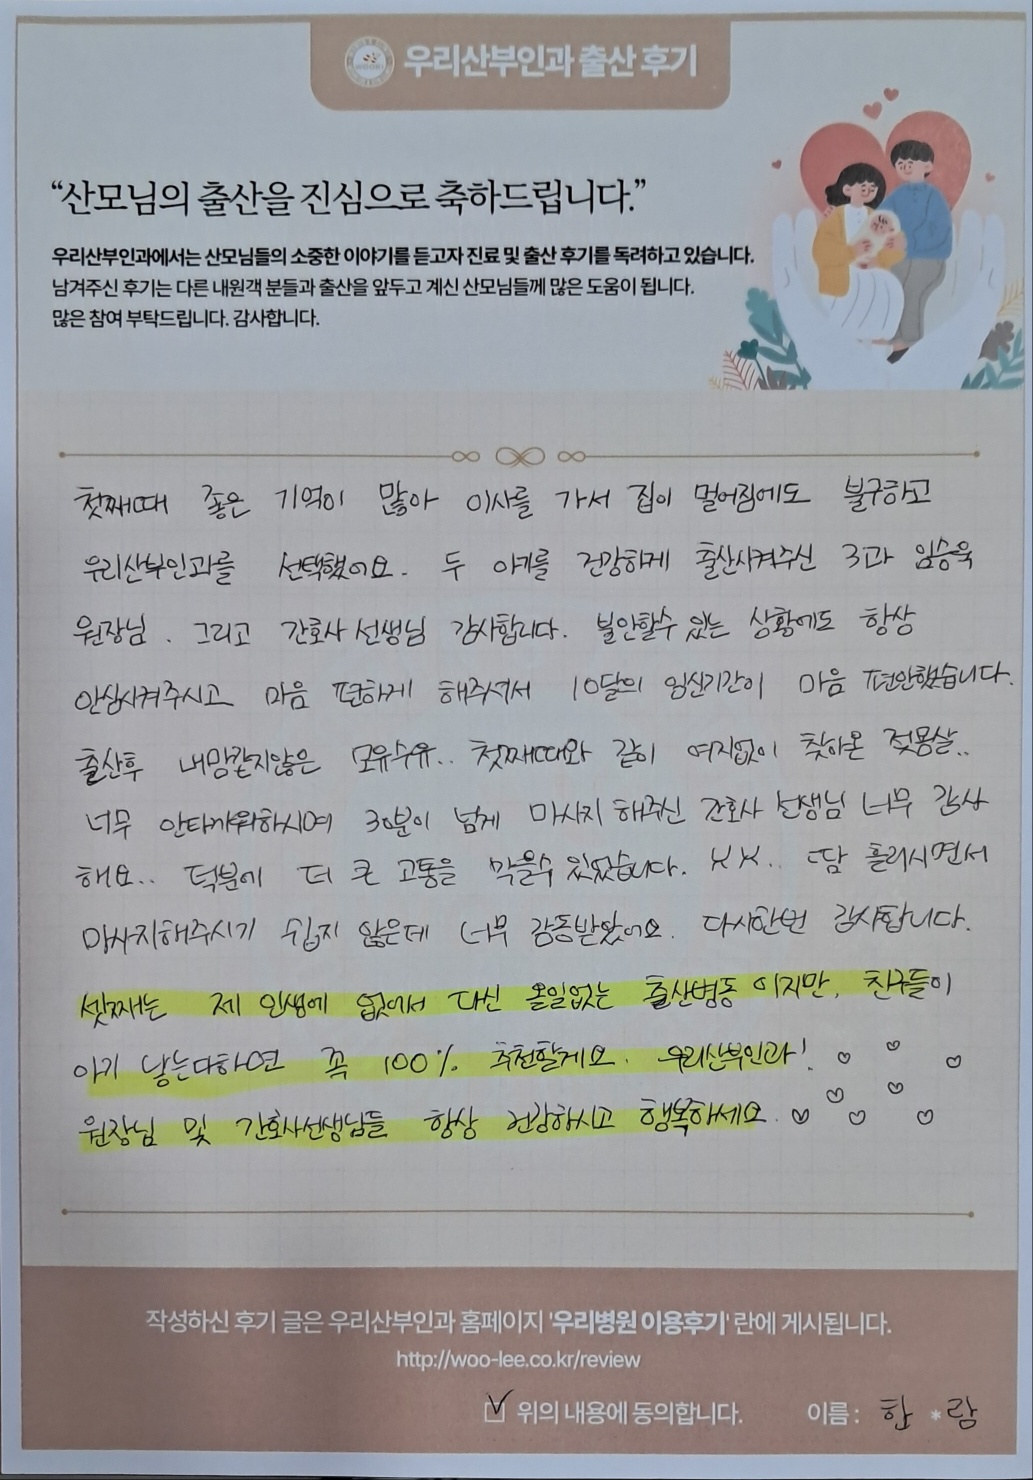 우리산부인과 출산 후기
“산모님의 출산을 진심으로 축하드립니다.”
우리산부인과에서는 산모님들의 소중한 이야기를 듣고자 진료 및 출산 후기를 독려하고 있습니다.
남겨주신 후기는 다른 내원객 분들과 출산을 앞두고 계신 산모님들께 많은 도움이 됩니다.
많은 참여 부탁드립니다. 감사합니다.
첫째때 좋은 기억이 많아 이사를 가서 집이 멀어짐에도 불구하고
우리산부인과를 선택했어요. 두 아기를 건강하게 출산시켜주신 3과 임승욱
원장님. 그리고 간호사 선생님 감사합니다. 불안할수 있는 상황에도 항상
안심시켜주시고 마음 편하게 해주셔서 10달의 임신기간이 마음 편안했습니다.
출산후 내맘같지않은 모유수유.. 첫째때와 같이 여지없이 찾아온 젖몽살..
너무 안타까워하시며 30분이 넘게 마사지 해주신 간호사 선생님 너무 감사
해요.. 덕분에 더 큰 고통을 막을수 있었습니다. ㅠㅠ.. 땀 흘리시면서
마사지해주시기 쉽지 않은데 너무 감동받았어요. 다시한번 감사합니다.
셋째는 제 인생에 없어서 다신 올일없는 출산병동 이지만, 친구들이
아기 낳는다하면 꼭 100% 추천할게요. 우리산부인과!
원장님 및 간호사선생님들 항상 건강하시고 행복하세요.
작성하신 후기 글은 우리산부인과 홈페이지 '우리병원 이용후기' 란에 게시됩니다.
http://woo-lee.co.kr/review
위의 내용에 동의합니다. 이름 : 한 * 람